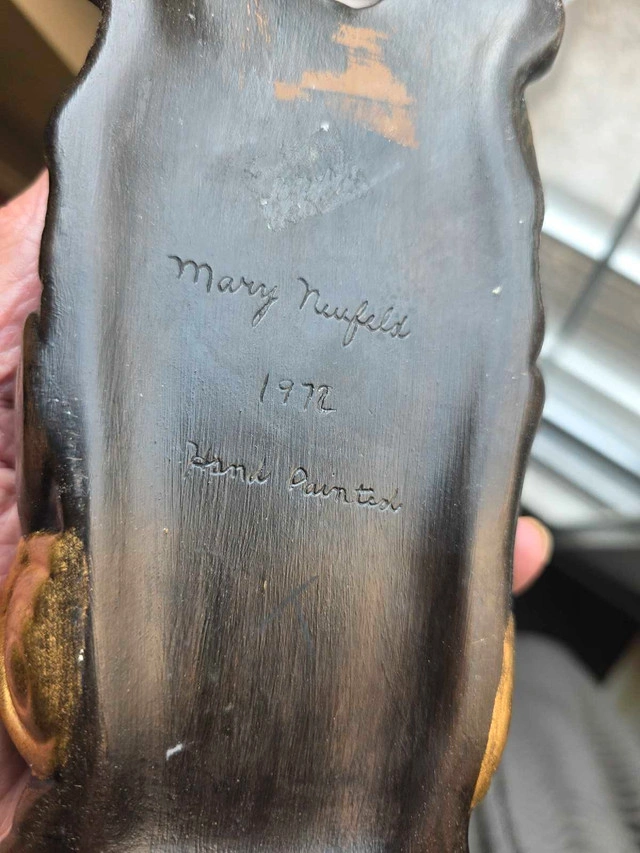 Mary Neufeld
1972
Hand Painted